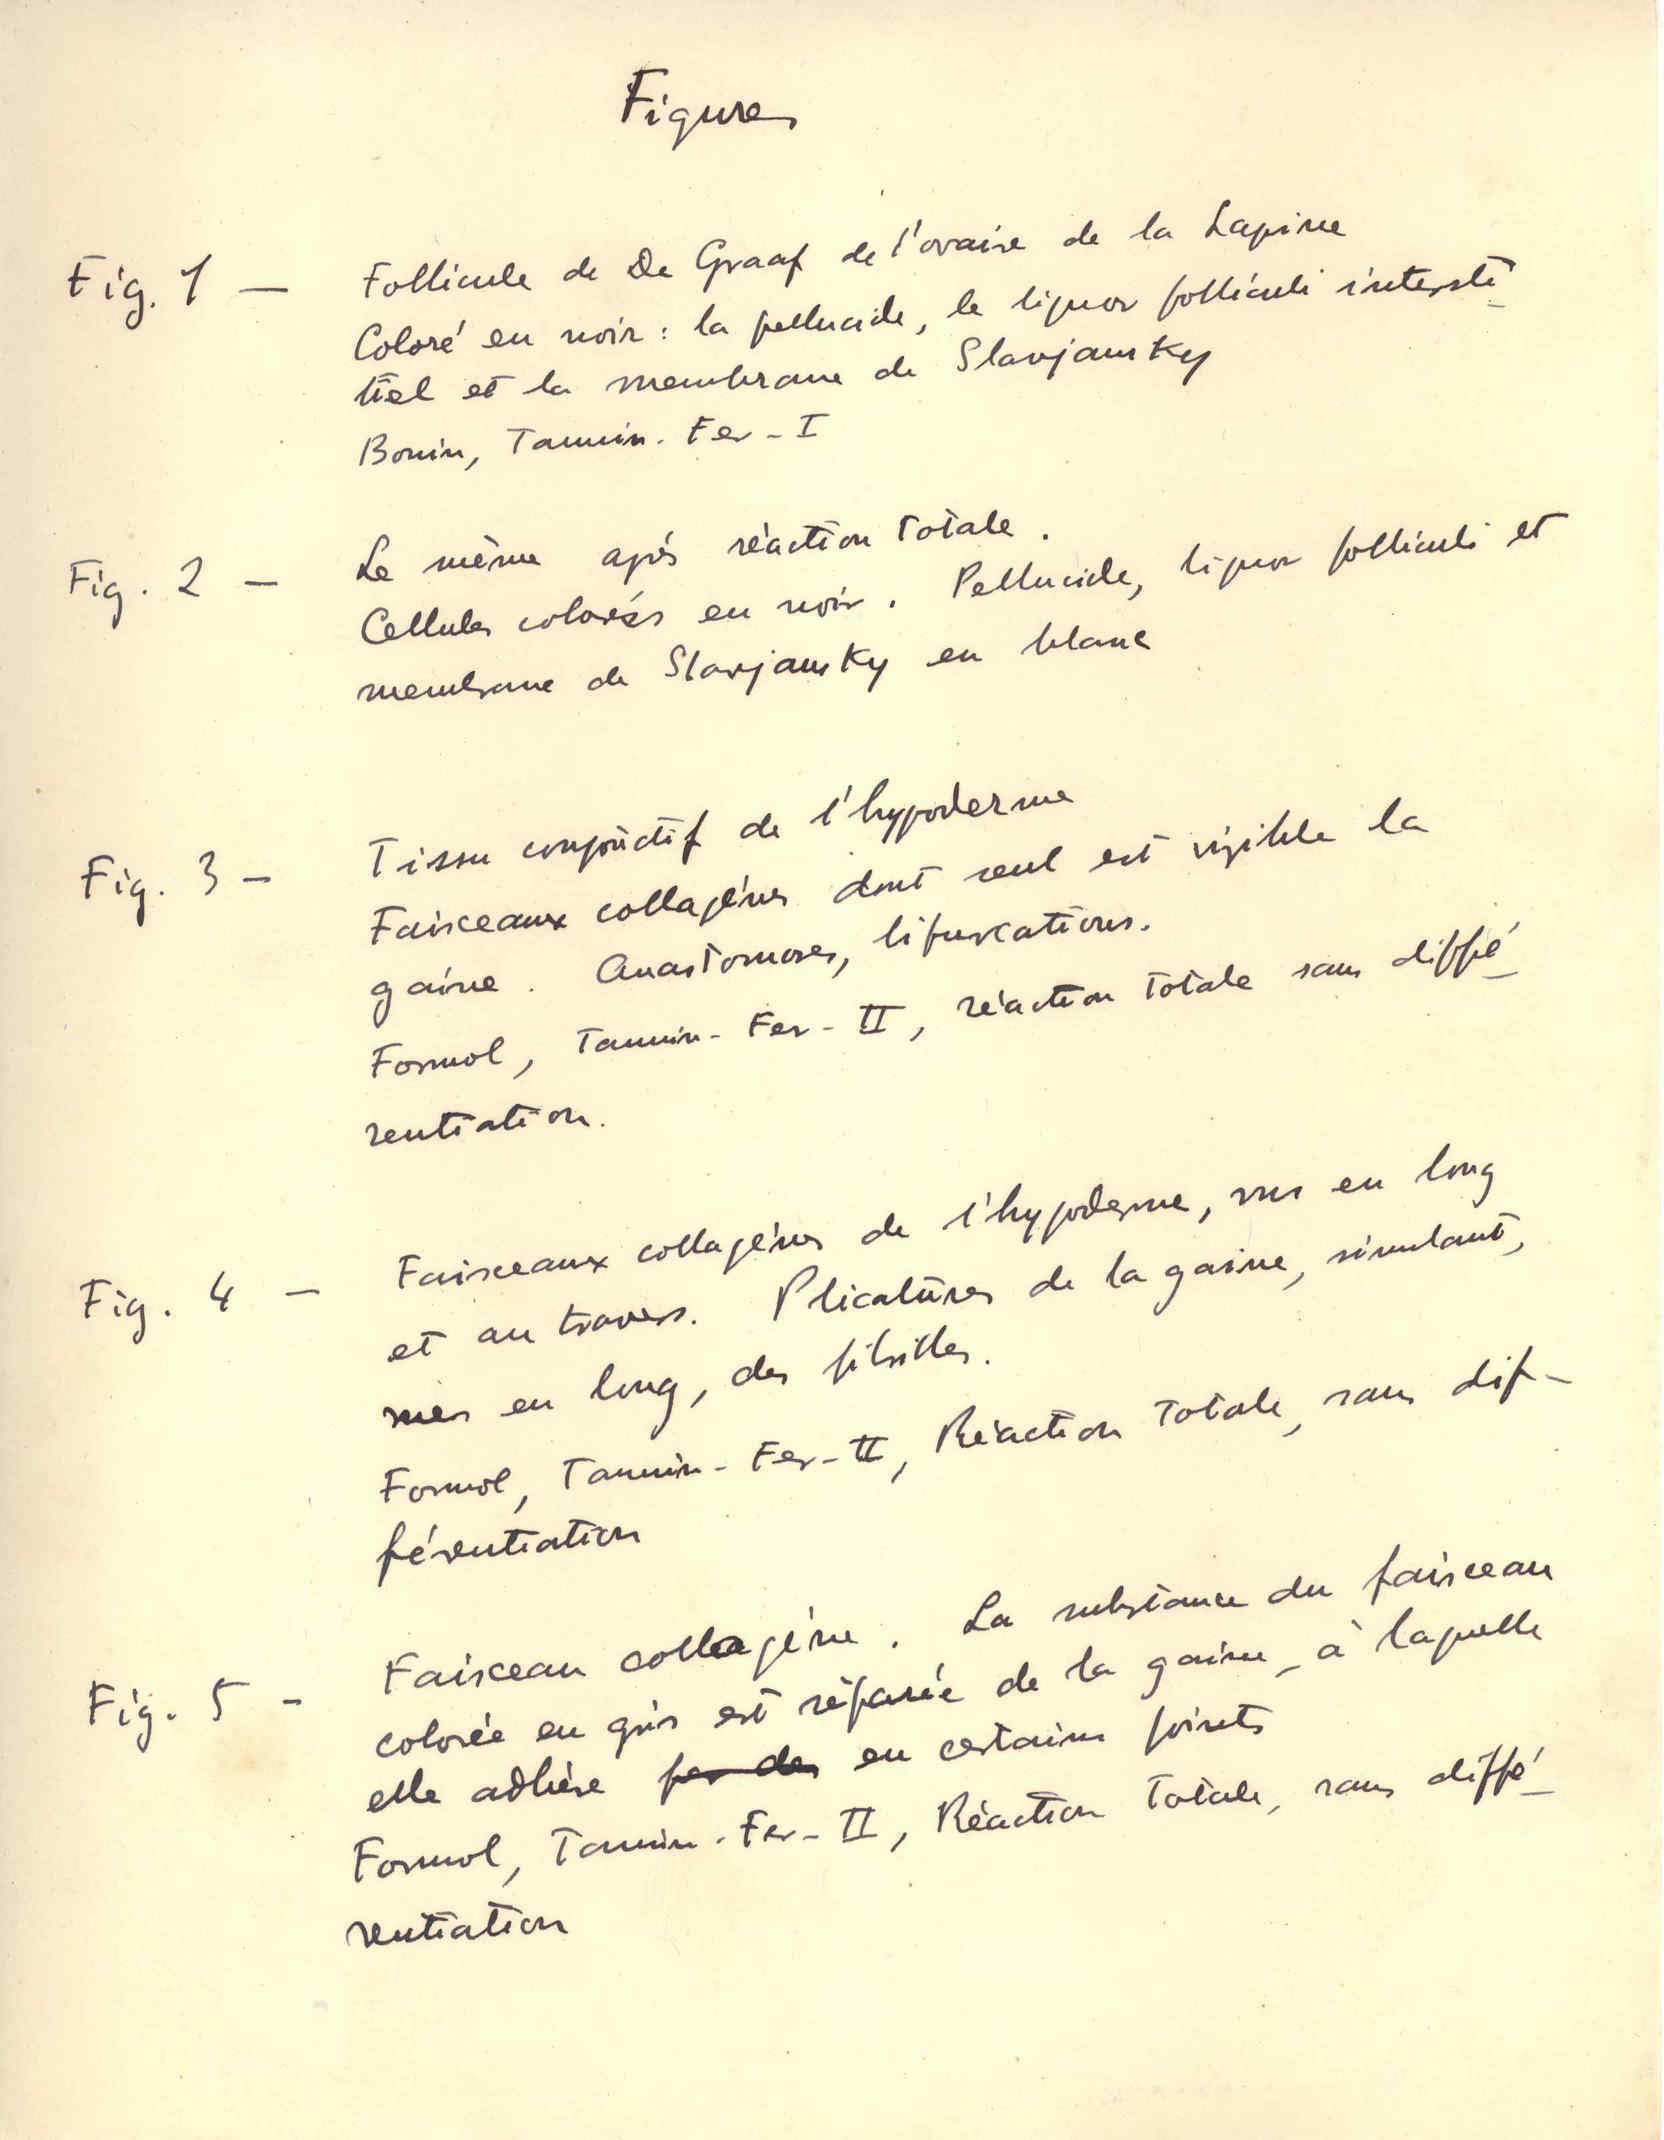 Figures
Fig. 1 — Follicule de De Graaf de l'ovaire de la Lapine
Coloré en noir : la pellucide, le liquor folliculi intersti-
tiel et la membrane de Slavjansky
Bouin, Tannin-Fer-I
Fig. 2 — Le même après réaction totale.
Cellules colorées en noir. Pellucide, liquor folliculi et
membrane de Slavjansky en blanc
Fig. 3 — Tissu conjonctif de l'hypoderme
Faisceaux collagènes dont seul est visible la
gaine. Anastomoses, bifurcations.
Formol, Tannin-Fer-II, réaction totale sans diffé-
rentiation.
Fig. 4 — Faisceaux collagènes de l'hypoderme, vus en long
et au travers. Plicatures de la gaine, simulant,
vues en long, des fibrilles.
Formol, Tannin-Fer-II, Réaction totale, sans dif-
férentiation
Fig. 5 — Faisceau collagène. La substance du faisceau
colorée en gris est séparée de la gaine à laquelle
elle adhère par des en certains points
Formol, Tannin-Fer-II, Réaction totale, sans diffé-
rentiation